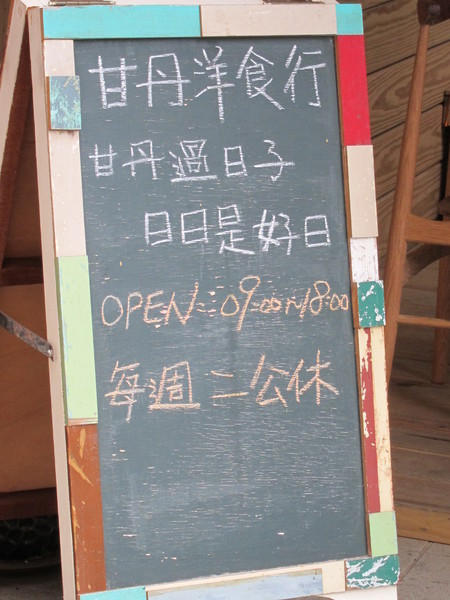 甘丹洋食行
甘丹過日子
日日是好日
OPEN: 09:00~18:00
每週二公休